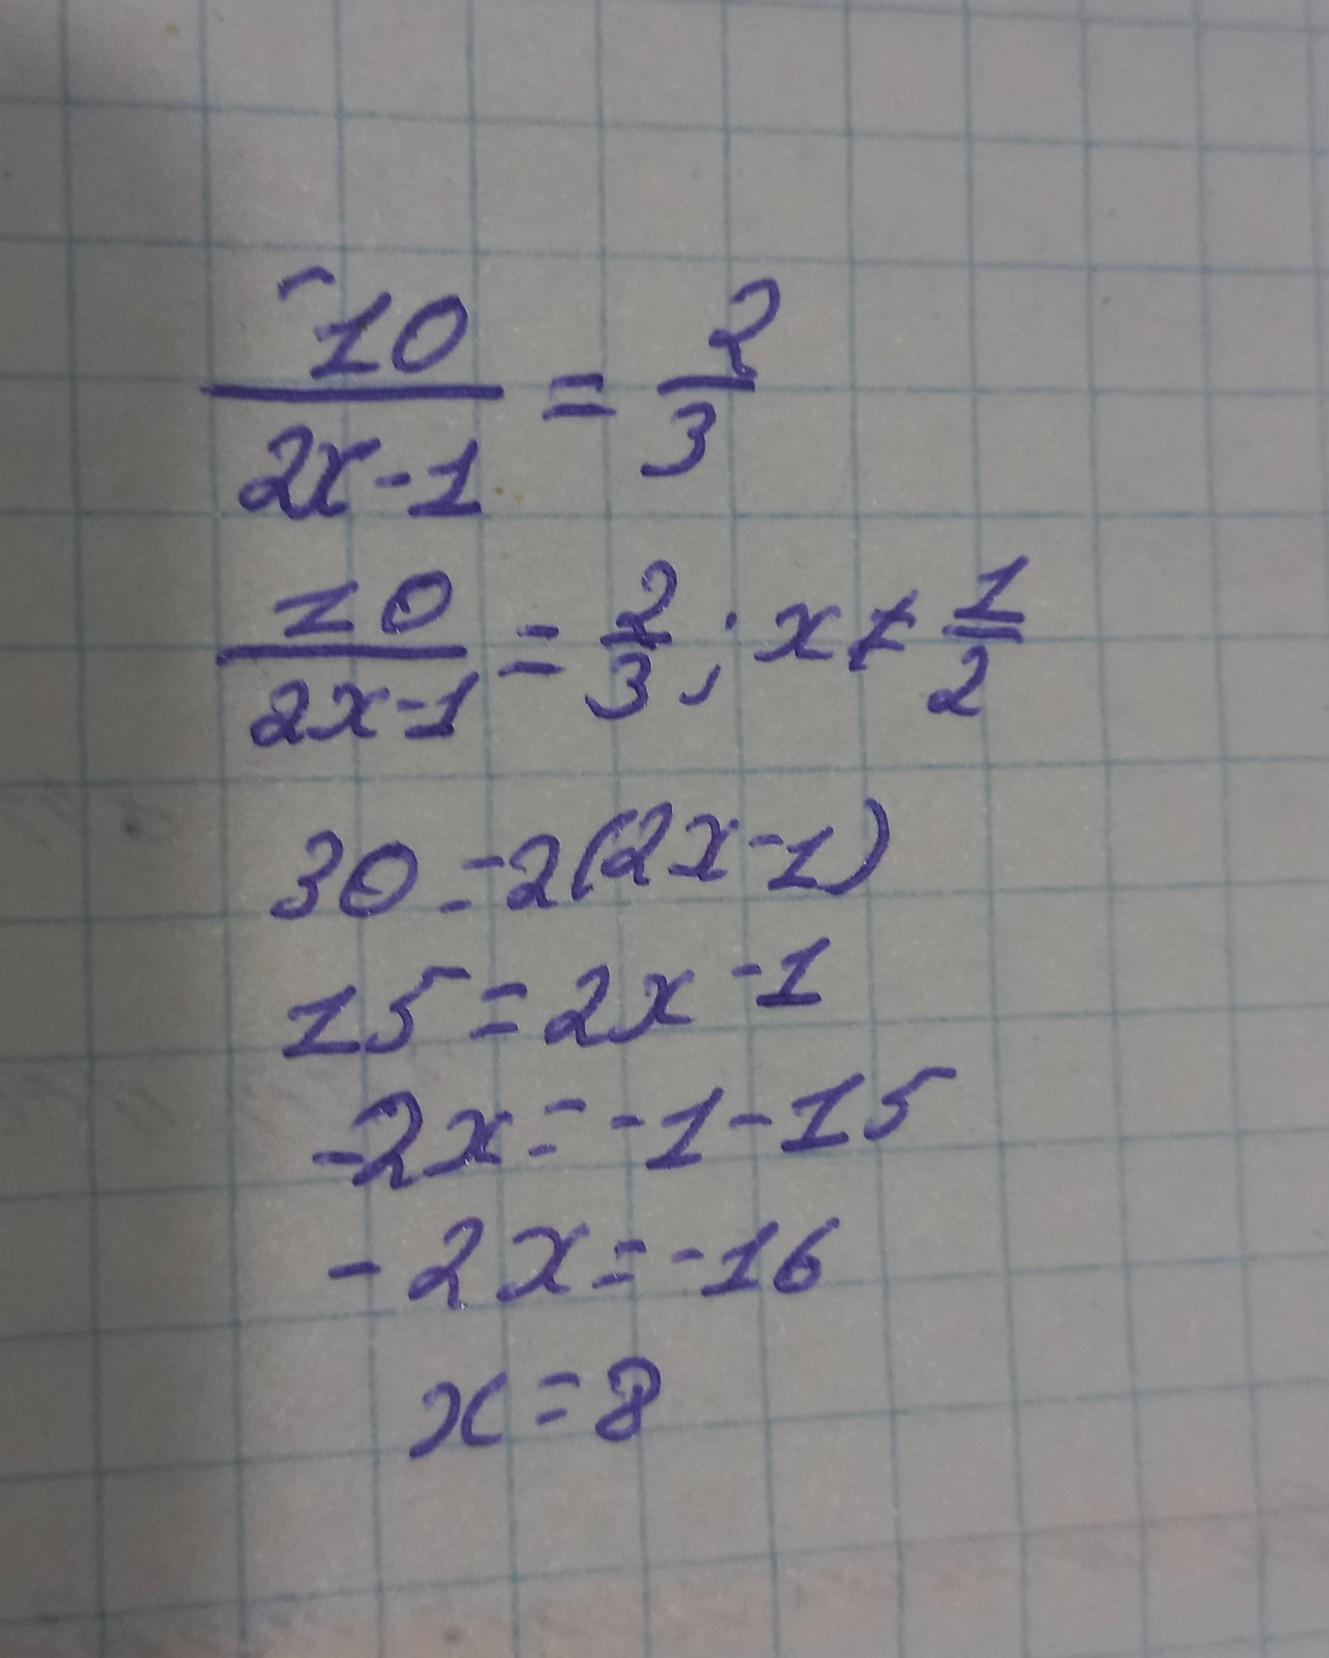 -10/(2x-1) = 2/3
10/(2x-1) = 2/3; x ≠ 1/2
30 = 2(2x-1)
15 = 2x-1
-2x = -1-15
-2x = -16
x = 8